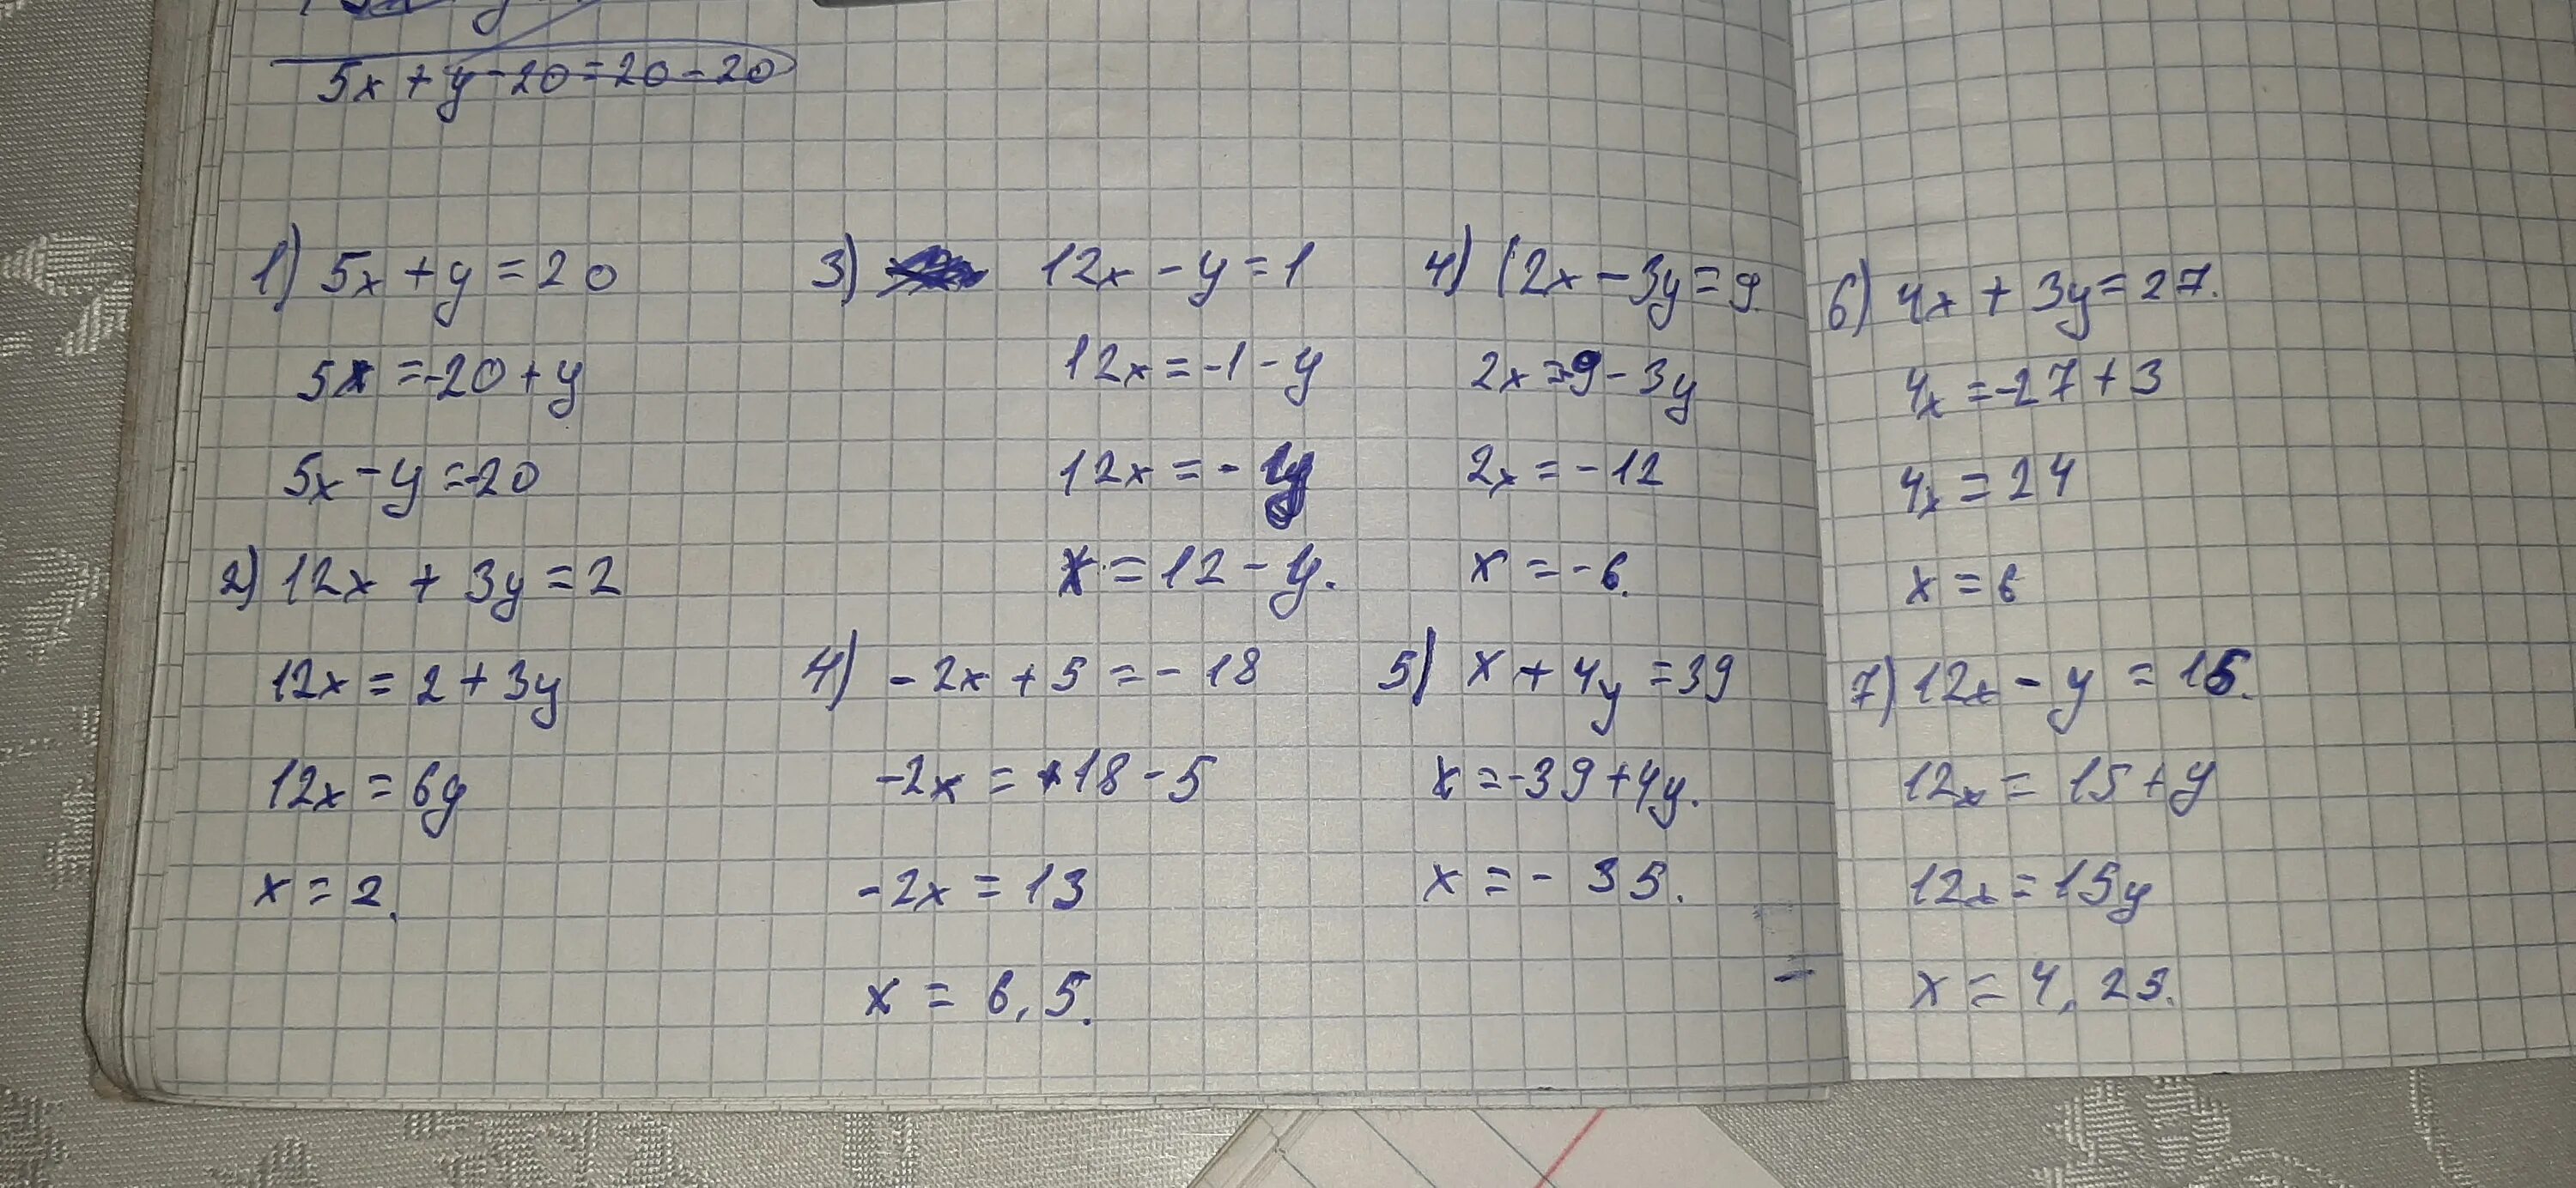 5x + y - 20 = 20 - 20
1) 5x + y = 20
5x = -20 + y
5x - y = -20
2) 12x + 3y = 2
12x = 2 + 3y
12x = 6y
x = 2.
3) 12x - y = 1
12x = -1 - y
12x = - y
x = 12 - y.
4) -2x + 5 = -18
-2x = +18 - 5
-2x = 13
x = 6,5.
4) (2x - 3y = 9
2x = -9 - 3y
2x = -12
x = -6.
5) x + 4y = 39
x = -39 + 4y.
x = - 35.
6) 4x + 3y = 27.
4x = -27 + 3
4x = 24
x = 6
7) 12x - y = 15.
12x = 15 + y
12x = 15y
x = 4,23.